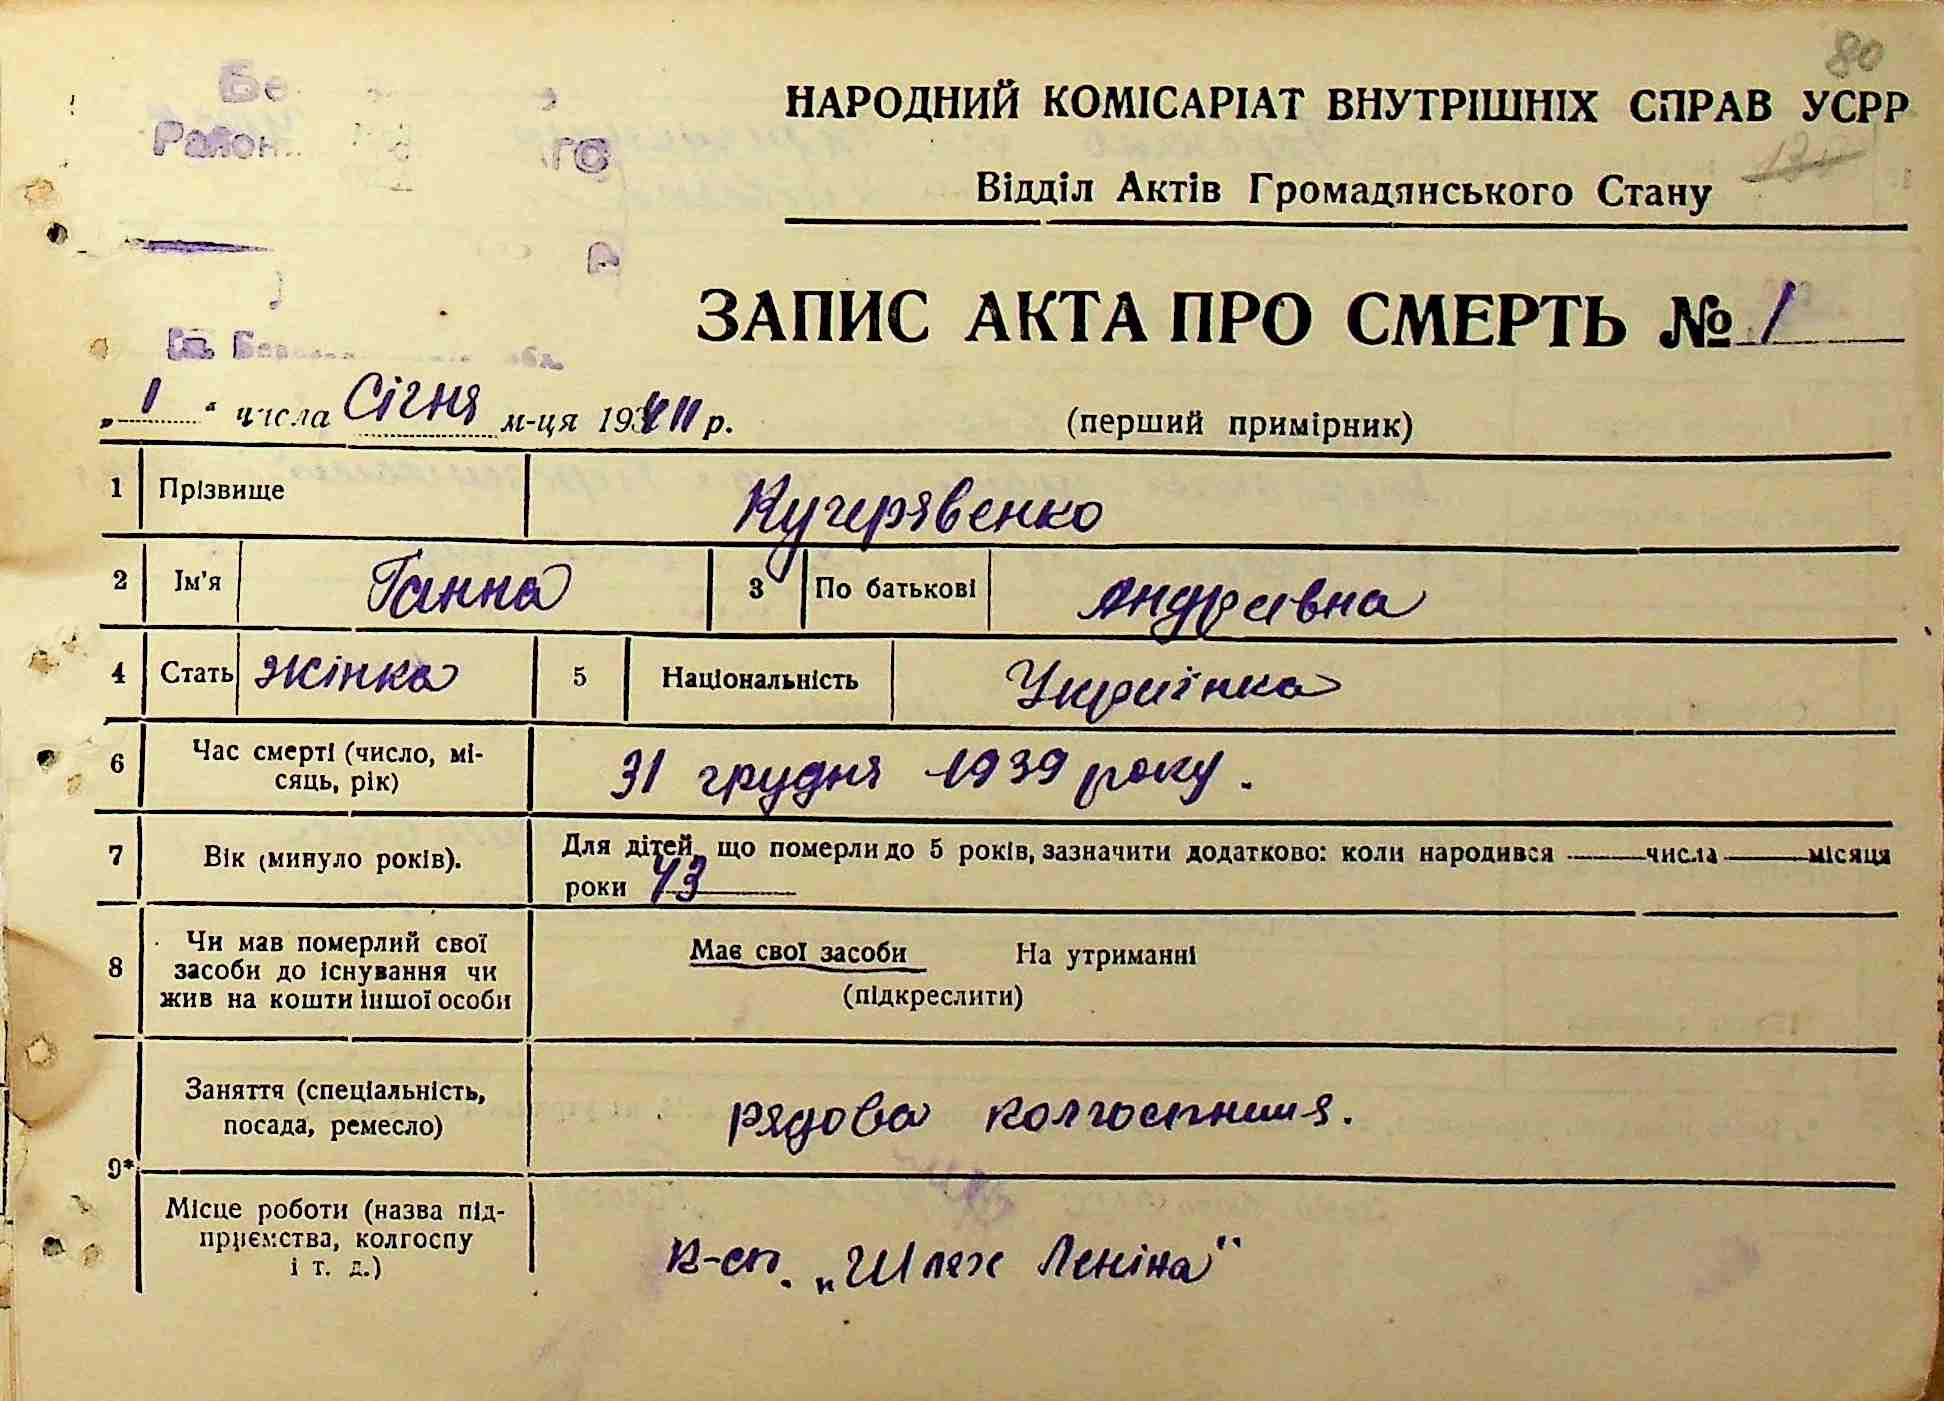 80
НАРОДНИЙ КОМІСАРІАТ ВНУТРІШНІХ СПРАВ УСРР
Відділ Актів Громадянського Стану
ЗАПИС АКТА ПРО СМЕРТЬ № 1
„ 1 “ числа Січня м-ця 19 р.
(перший примірник)
1 Прізвище Кучерявенко
2 Ім'я Ганна 3 По батькові Андріївна
4 Стать жінка 5 Національність Українка
6 Час смерті (число, мі-
сяць, рік) 31 грудня 1939 року.
7 Вік (минуло років). Для дітей, що померли до 5 років, зазначити додатково: коли народився числа місяця
роки 43
8 Чи мав померлий свої
засоби до існування чи
жив на кошти іншої особи
Має свої засоби На утриманні
(підкреслити)
9*
Заняття (спеціальність,
посада, ремесло) рядова колгоспниця.
Місце роботи (назва під-
приємства, колгоспу
і т. д.) к-сп. „Шлях Леніна"